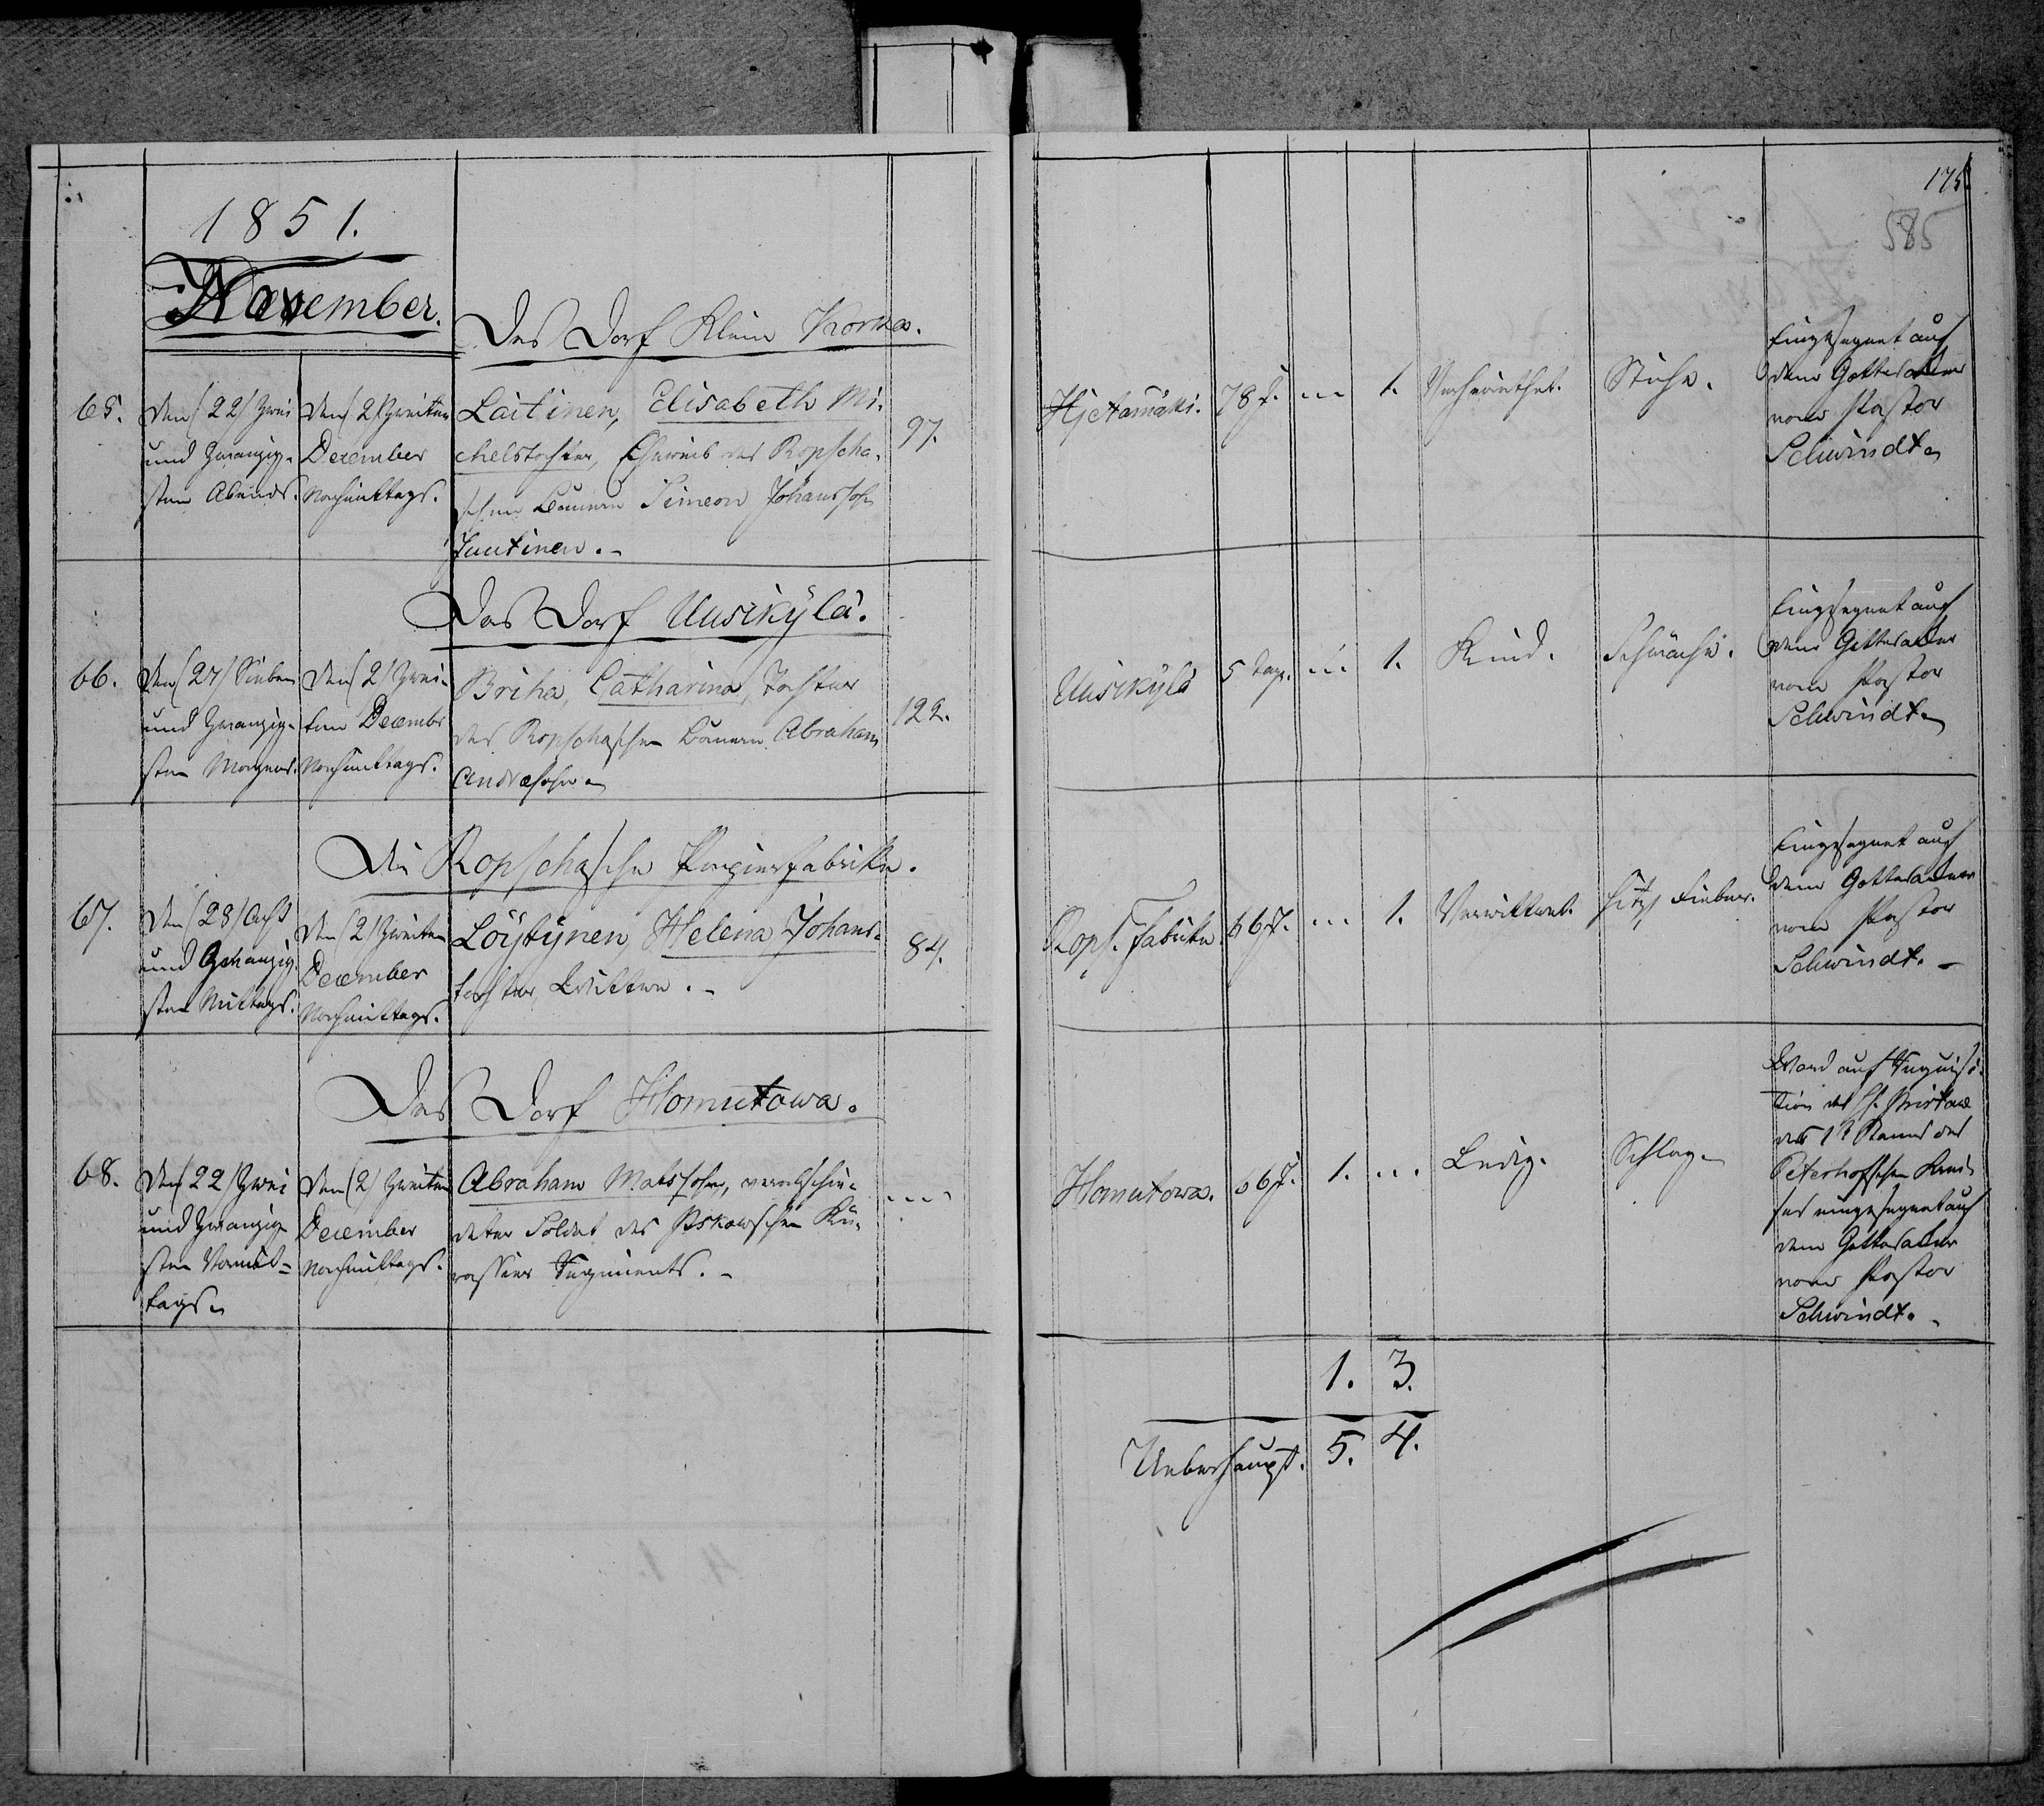 1851.
November.
175.
585
Das Dorf Klein Korka.
65.
Den (22) Zwei
und Zwanzig-
sten Abends.
Den (2) Zweiten
December
Nachmittags.
Laitinen, Elisabeth Mi-
chelstochter, Eheweib des Ropscha-
schen Bauern Simeon Johannsohn
Juutinen.-
97.
Hjetamäki.
78 J.
...
1.
Verheirathet.
Stiche.
Eingesegnet auf
dem Gottesacker
vom Pastor
Schwindt.
Das Dorf Uusikylä.
66.
Den (27) Sieben
und Zwanzig-
sten Morgens.
Den (2) Zwei-
ten Decembr
Nachmittags.
Briha, Catharina, Tochter
des Ropschaschen Bauern Abraham
Andreasohn
122.
Uusikylä
5 Tage.
...
1.
Kind.
Schwäche.
Eingesegnet auf
dem Gottesacker
vom Pastor
Schwindt.
Die Ropschasche Papierfabrike.
67.
Den (28) Acht
und Zwanzig-
sten Mittags.
Den (2) Zweiten
December
Nachmittags.
Löytynen, Helena Johans-
tochter, Wittwe.-
84.
Ropf. Fabrike
66 J.
...
1.
Verwittwet.
Hitz Fieber.
Eingesegnet auf
dem Gottesacker
vom Pastor
Schwindt.-
Das Dorf Homutowa.
68.
Den (22) Zwei
und Zwanzig-
sten Vormit-
tags.
Den (2) Zweiten
December
Nachmittags.
Abraham Matssohn, verabschie-
deter Soldat des Pskowschen Kü-
rassier Regiments.-
...
Homutowa.
66 J.
1.
...
Ledig.
Schlag.
Ward auf Requisi-
tion des H. Pristaw
des 1n Stanes des
Peterhofschen Krei-
ses eingesegnet auf
dem Gottesacker
vom Pastor
Schwindt.-
1. 3.
Ueberhaupt. 5. 4.